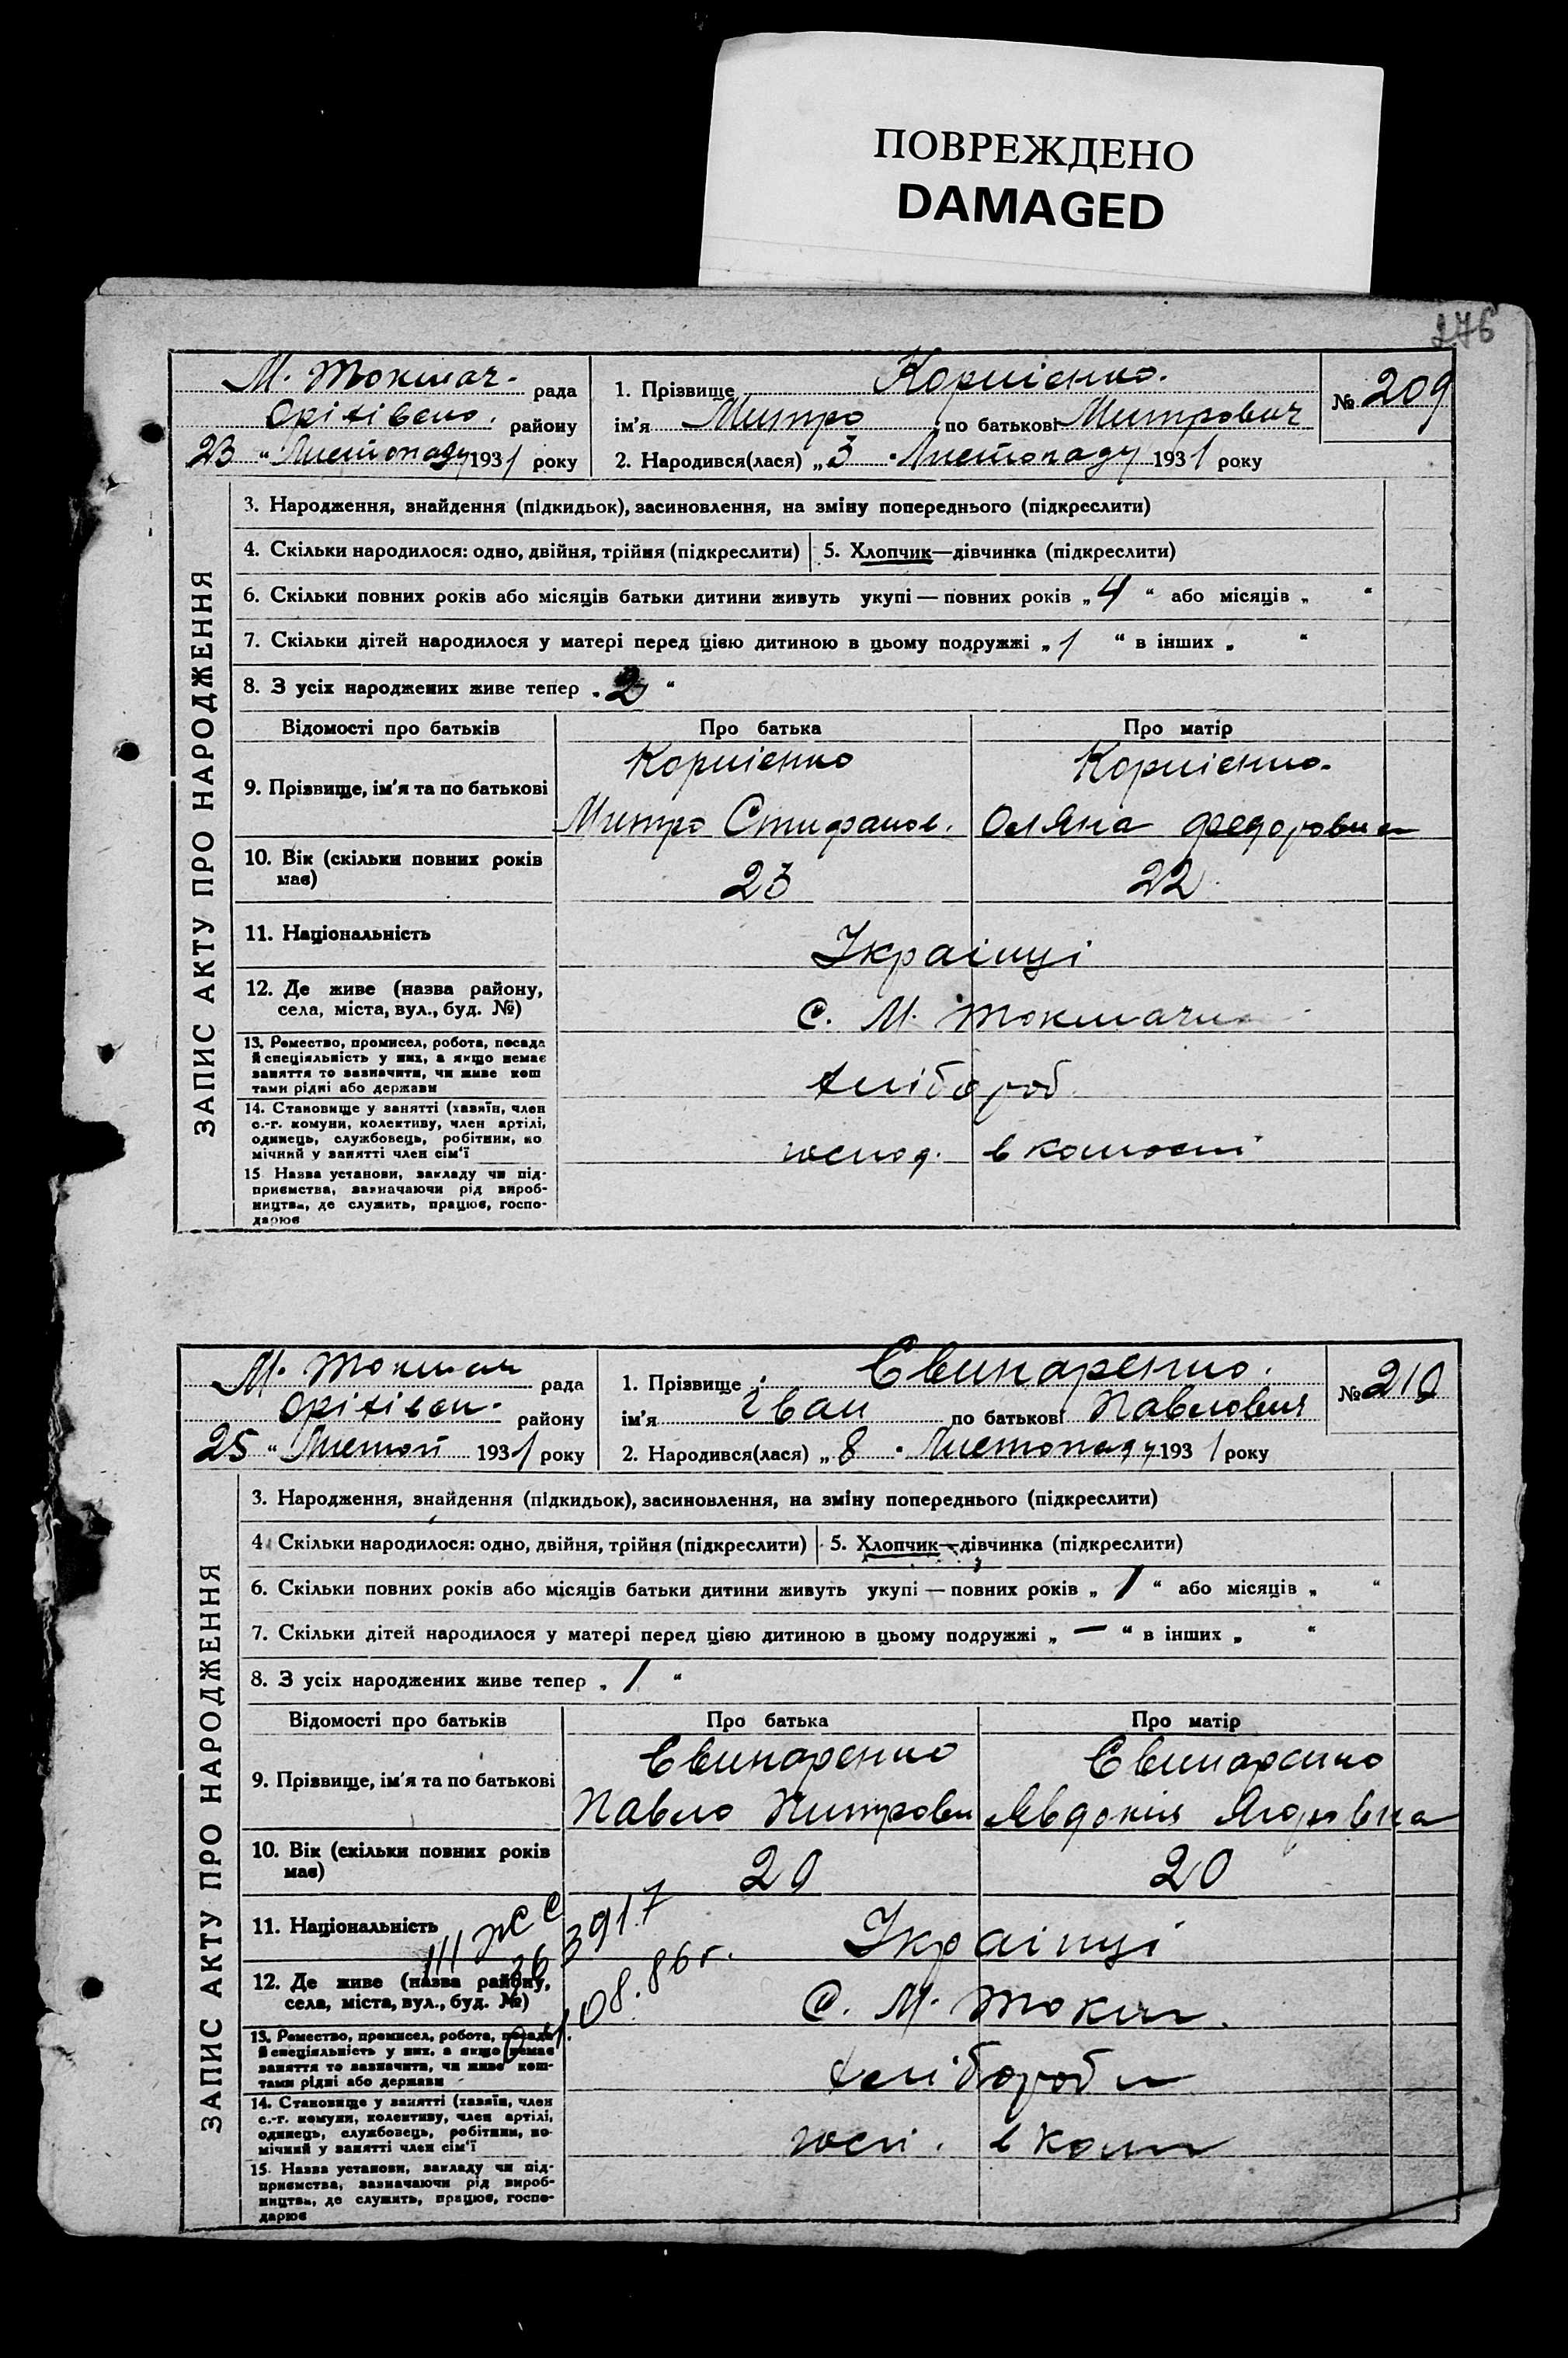 ПОВРЕЖДЕНО
DAMAGED
276
М. Токмач. рада
Оріхівсько. району
23 " Листопаду 1931 року
1. Прізвище Корнієнко.
ім'я Митро по батькові Митрович
2. Народився(лася) „ 3 " Листопаду 1931 року
№ 209
ЗАПИС АКТУ ПРО НАРОДЖЕННЯ
3. Народження, знайдення (підкидьок), засиновлення, на зміну попереднього (підкреслити)
4. Скільки народилося: одно, двійня, трійня (підкреслити) 5. Хлопчик—дівчинка (підкреслити)
6. Скільки повних років або місяців батьки дитини живуть укупі — повних років „ 4 " або місяців „ "
7. Скільки дітей народилося у матері перед цією дитиною в цьому подружжі „ 1 " в інших „ "
8. З усіх народжених живе тепер „ 2 "
Відомості про батьків Про батька Про матір
9. Прізвище, ім'я та по батькові
Корнієнко Корнієнко.
Митро Стифанов. Оляна Федоровна
10. Вік (скільки повних років має) 23 22
11. Національність Українці
12. Де живе (назва району,
села, міста, вул., буд. №) С. М. Токмачка
13. Ремество, промисел, робота, посада
й спеціяльність у них, а якщо немає
заняття то зазначити, чи живе кош
тами рідні або держави
хлібороб.
14. Становище у занятті (хазяїн, член
с.-г. комуни, колективу, член артілі,
одинець, службовець, робітник, по
мічний у занятті член сім'ї
господ. в колгоспі
15 Назва установи, закладу чи під-
приємства, зазначаючи рід вироб-
ництва, де служить, працює, госпо-
дарює
М. Токмач рада
Оріхівськ. району
25 " Листоп 1931 року
1. Прізвище Свинаренко.
ім'я Іван по батькові Павлович
2. Народився(лася) „ 8 " Листопаду 1931 року
№ 210
ЗАПИС АКТУ ПРО НАРОДЖЕННЯ
3. Народження, знайдення (підкидьок), засиновлення, на зміну попереднього (підкреслити)
4. Скільки народилося: одно, двійня, трійня (підкреслити) 5. Хлопчик—дівчинка (підкреслити)
6. Скільки повних років або місяців батьки дитини живуть укупі — повних років „ 1 " або місяців „ "
7. Скільки дітей народилося у матері перед цією дитиною в цьому подружжі „ — " в інших „ "
8. З усіх народжених живе тепер „ 1 "
Відомості про батьків Про батька Про матір
9. Прізвище, ім'я та по батькові
Свинаренко Свинаренко
Павло Питрови Явдокія Ягоровна
10. Вік (скільки повних років має) 20 20
11. Національність Українці
III ЖС 363917
01.08.86г.
12. Де живе (назва району,
села, міста, вул., буд. №) С. М. Токм.
13. Ремество, промисел, робота, посада
й спеціяльність у них, а якщо немає
заняття то зазначити, чи живе кош-
тами рідні або держави
хлібороби
14. Становище у занятті (хазяїн, член
с.-г. комуни, колективу, член артілі,
одинець, службовець, робітник, по-
мічний у занятті член сім'ї
госп. в колг
15. Назва установи, закладу чи під-
приємства, зазначаючи рід вироб-
ництва, де служить, працює, госпо-
дарює